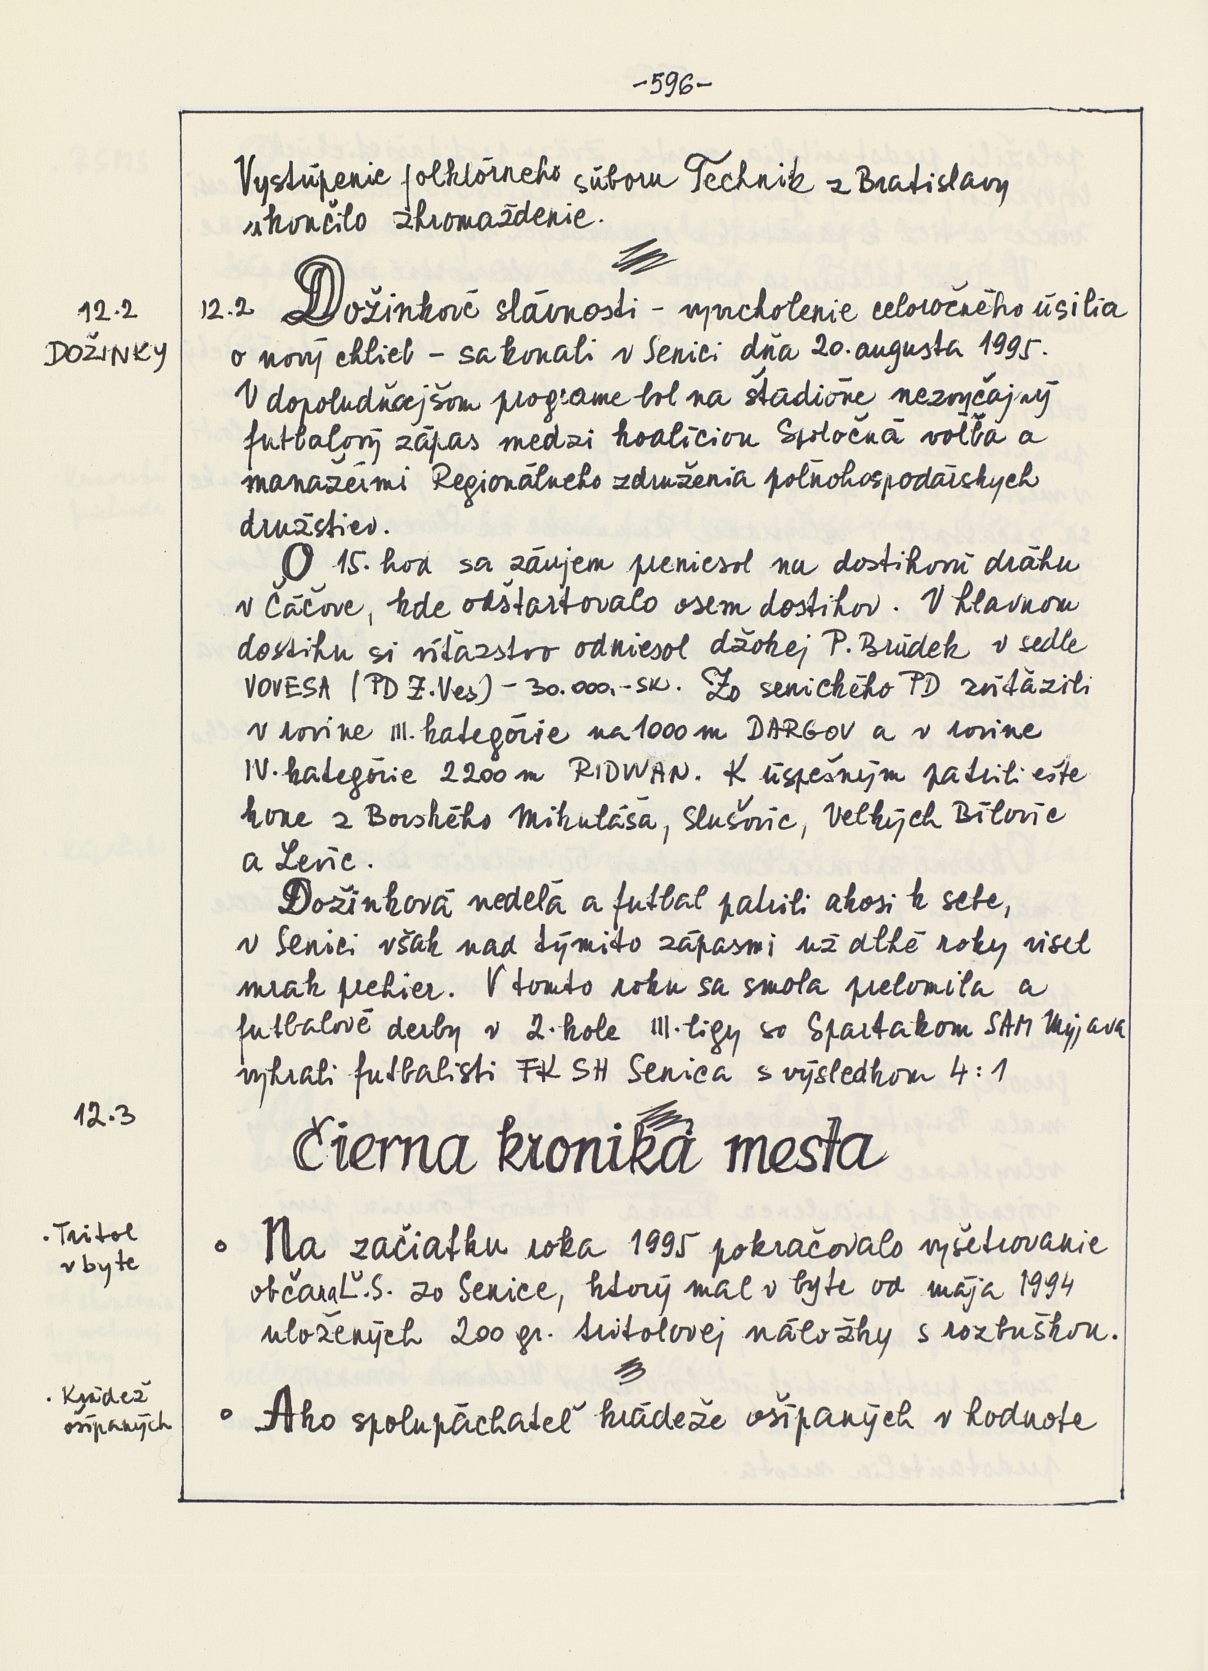 -596-
Vystúpenie folklórneho súboru Technik z Bratislavy
ukončilo zhromaždenie.
12.2
DOŽINKY
12.2 Dožinkové slávnosti - vyvrcholenie celoročného úsilia
o nový chlieb - sa konali v Senici dňa 20. augusta 1995.
V dopoludňajšom programe bol na štadióne nezvyčajný
futbalový zápas medzi koalíciou Spoločná voľba a
manažérmi Regionálneho združenia poľnohospodárskych
družstiev.
O 15. hod sa záujem preniesol na dostihovú dráhu
v Čáčove, kde odštartovalo osem dostihov. V hlavnom
dostihu si víťazstvo odniesol džokej P. Brůdek v sedle
VOVESA (PD Z. Ves) - 30.000.- SK. Zo senického PD zvíťazili
v rovine III. kategórie na 1000 m DARGOV a v rovine
IV. kategórie 2200 m RIDWAN. K úspešným patrili ešte
kone z Borského Mikuláša, Slušovíc, Velkých Bílovíc
a Levíc.
Dožinková nedeľa a futbal patrili akosi k sebe,
v Senici však nad týmito zápasmi už dlhé roky visel
mrak prehier. V tomto roku sa smola prelomila a
futbalové derby v 2. kole III. ligy so Spartakom SAM Myjava
vyhrali futbalisti FK SH Senica s výsledkom 4:1
12.3
Čierna kronika mesta
· Tritol
v byte
o Na začiatku roka 1995 pokračovalo vyšetrovanie
občana Ľ. S. zo Senice, ktorý mal v byte od mája 1994
uložených 200 gr. tritolovej náložky s rozbuškou.
· Krádež
ošípaných
o Ako spolupáchateľ krádeže ošípaných v hodnote